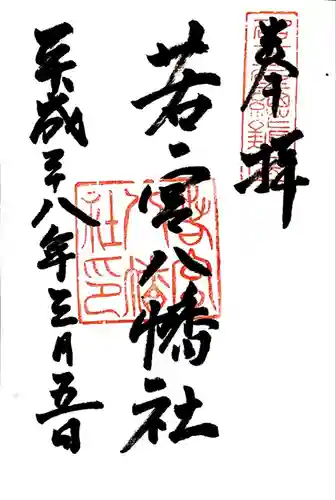 奉拝
若宮八幡社
平成二十八年三月五日